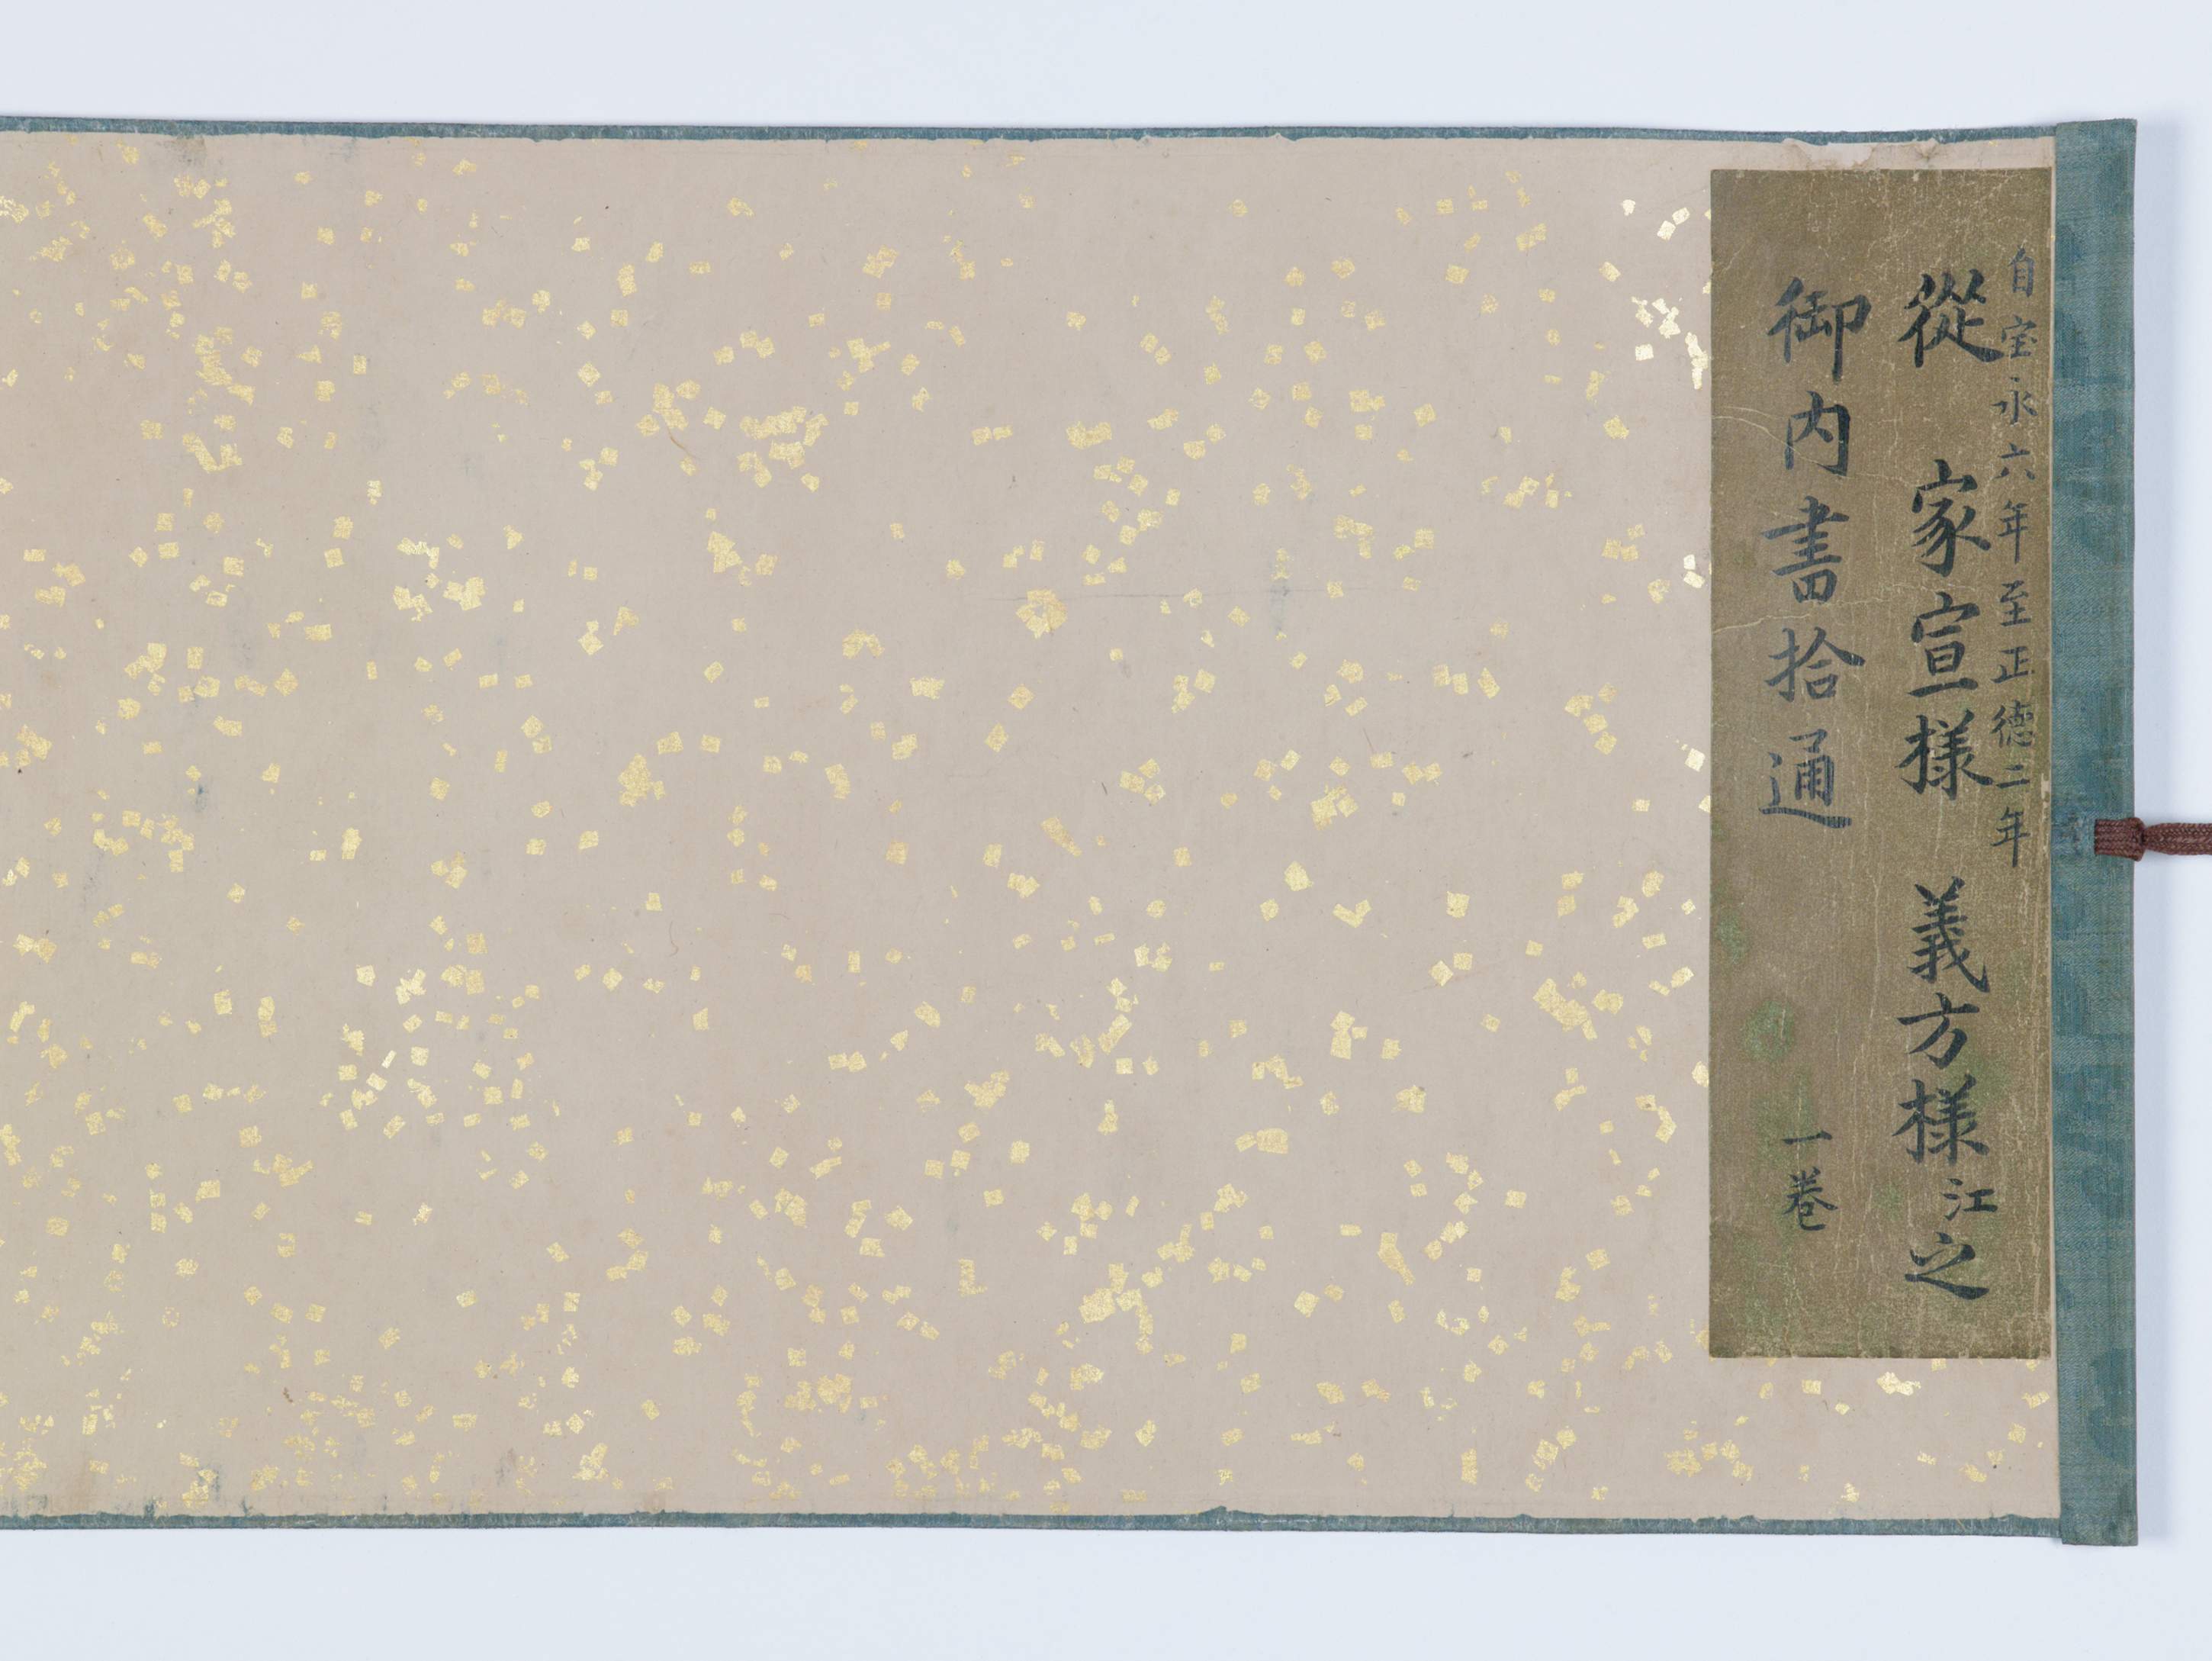 自宝永六年至正徳二年
從 家宣様 義方様江之
御内書拾通 一巻